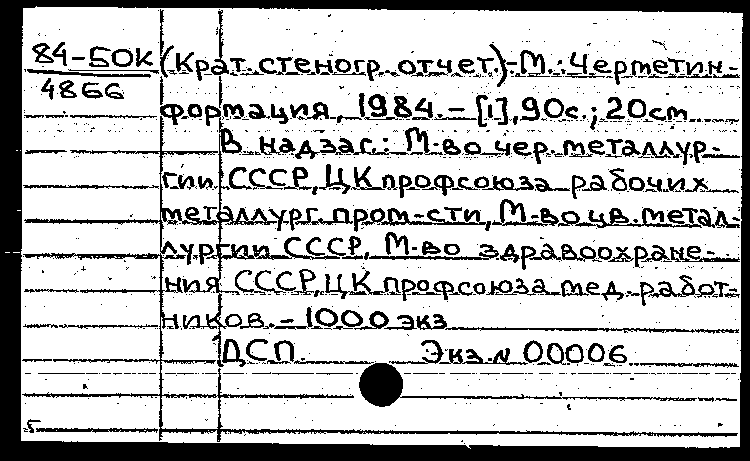 84-БОК (Крат. стеногр. отчет.)-М.: Черметин-
4866
формация, 1984. - [1], 90с.; 20см
В надзаг.: М-во чер. металлур-
гии СССР, ЦК профсоюза рабочих
металлург. пром-сти, М-во цв. метал-
лургии СССР, М-во здравоохране-
ния СССР, ЦК профсоюза мед. работ-
ников. - 1000 экз
ДСП. Экз. N 00006
5